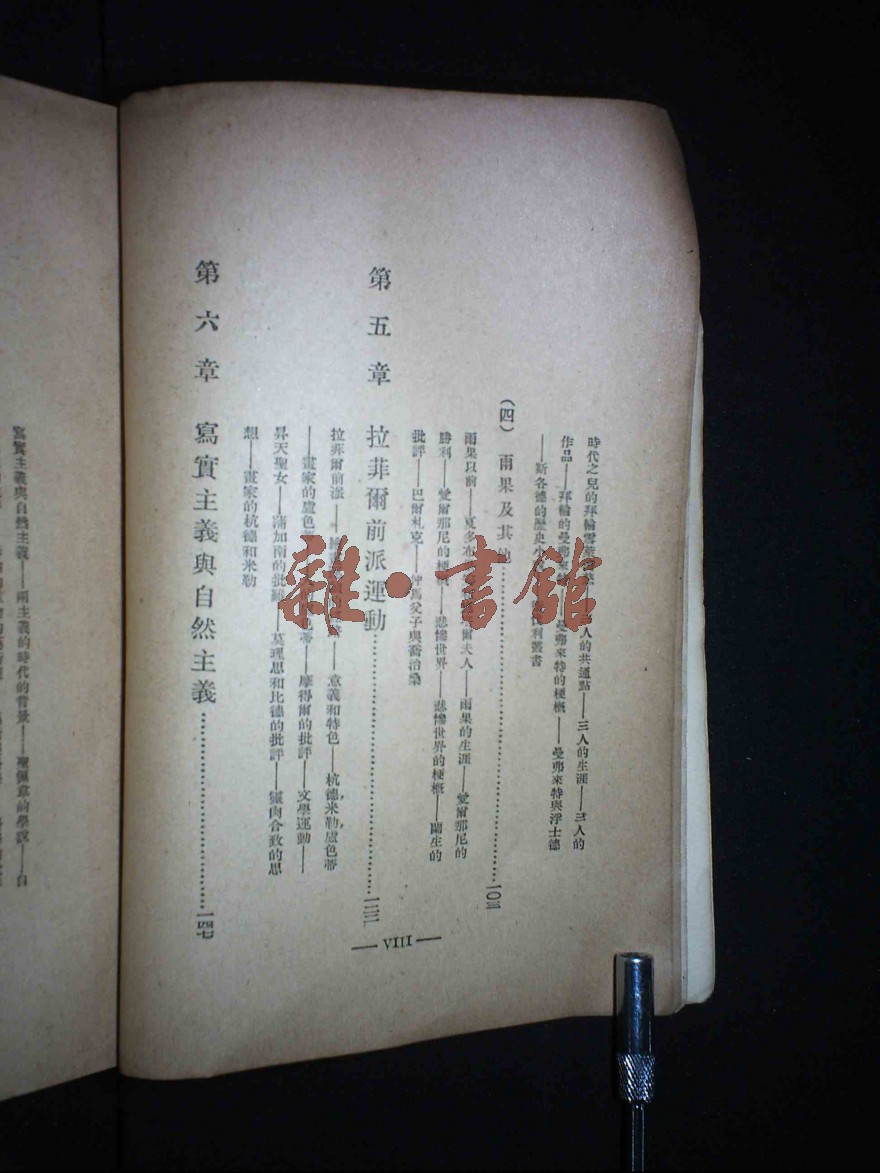 時代之兒的拜輪雪萊 三人的共通點——三人的生涯——三人的
作品——拜輪的曼弗來特——曼弗來特的梗概——曼弗來特與浮士德
——斯各德的歷史小 利叢書
(四) 雨果及其他……一〇三
雨果以前——夏多布 爾夫人——雨果的生涯——愛爾那尼的
勝利——愛爾那尼的梗概——悲慘世界——悲慘世界的梗概——
批評——巴爾札克——仲馬父子與喬治桑
第五章 拉菲爾前派運動……一二三
拉菲爾前派—— ——意義和特色——杭德,米勒,盧色蒂
——畫家的盧色蒂 色蒂——摩得爾的批評——文學運動——
昇天聖女——蒲加南的批評——莫理思和比德的批評——靈肉合致的思
想——畫家的杭德和米勒
第六章 寫實主義與自然主義……一四七
— VIII —
寫實主義與自然主義——兩主義的時代的背景——聖佩韋的學說——自
雜·書館